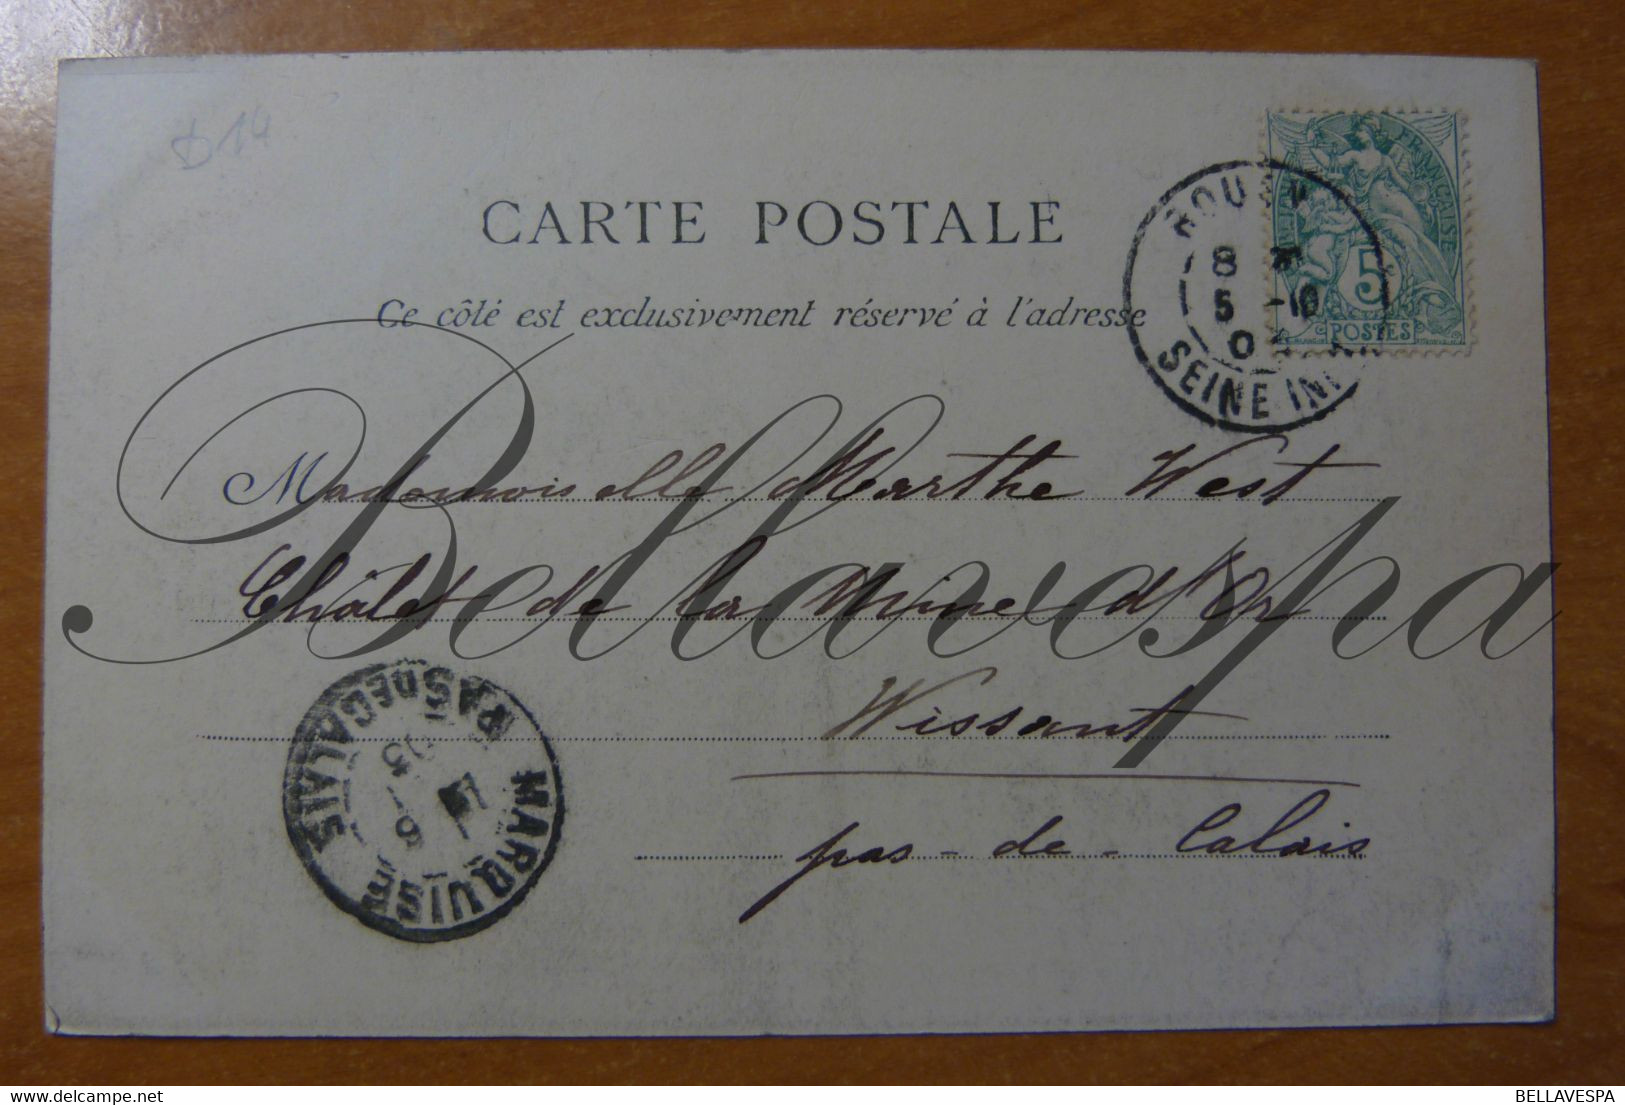 D14
CARTE POSTALE
Ce côté est exclusivement réservé à l'adresse
ROUEN
8 E
5 -10
0
SEINE INF
FRANÇAISE
5
POSTES
Mademoiselle Marthe West
Châlet de la Mine d'Or
Wissant
pas-de-Calais
MARQUISE
PAS DE CALAIS
6
05
Bellavespa
BELLAVESPA